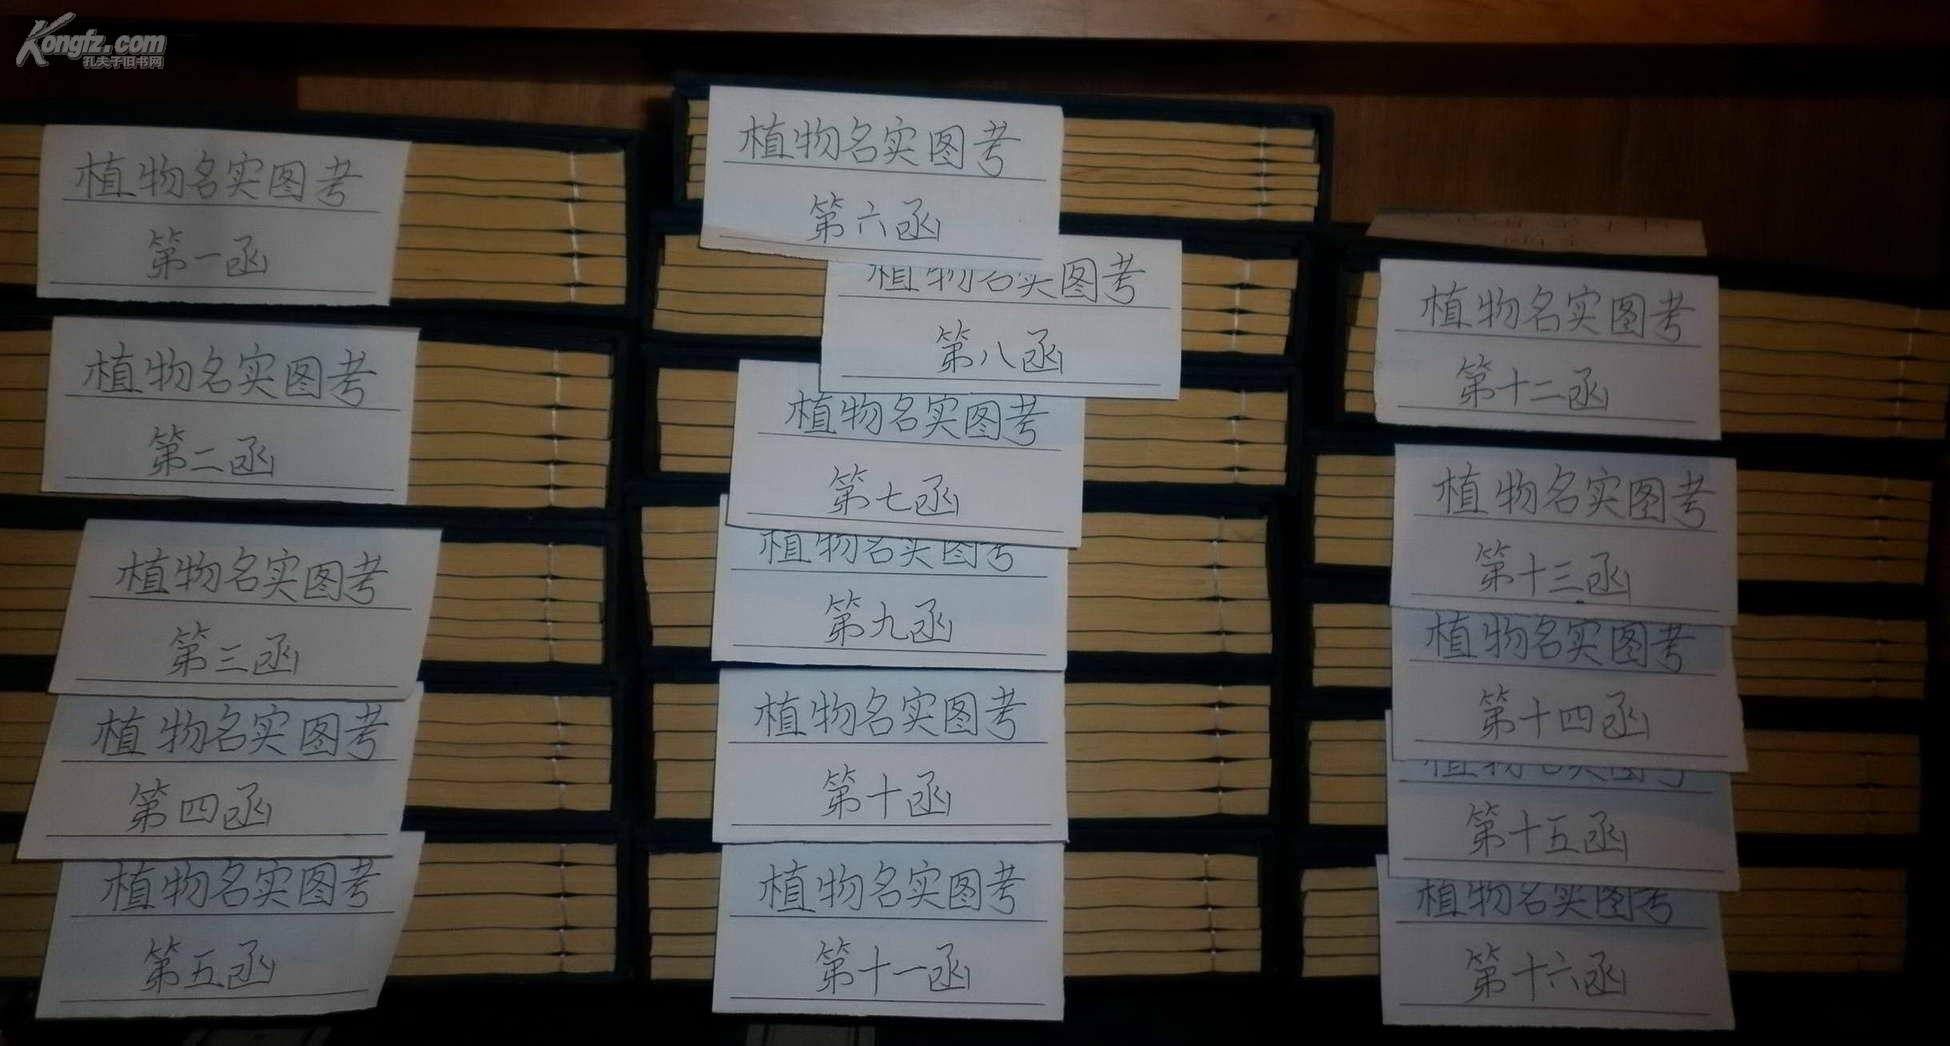 Kongfz.com
孔夫子旧书网
植物名实图考
第一函
植物名实图考
第二函
植物名实图考
第三函
植物名实图考
第四函
植物名实图考
第五函
植物名实图考
第六函
植物名实图考
第八函
植物名实图考
第七函
植物名实图考
第九函
植物名实图考
第十函
植物名实图考
第十一函
植物名实图考
第十二函
植物名实图考
第十三函
植物名实图考
第十四函
植物名实图考
第十五函
植物名实图考
第十六函